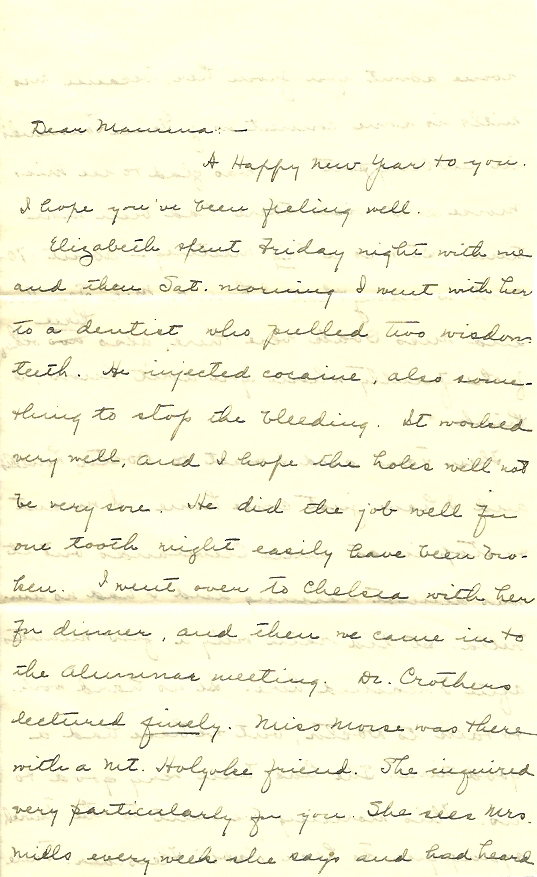 Dear Mamma: —
A Happy New Year to you.
I hope you've been feeling well.
Elizabeth spent Friday night with me
and then Sat. morning I went with her
to a dentist who pulled two wisdom
teeth. He injected cocaine, also some-
thing to stop the bleeding. It worked
very well, and I hope the holes will not
be very sore. He did the job well for
one tooth might easily have been bro-
ken. I went over to Chelsea with her
for dinner, and then we came in to
the Alumnae meeting. Dr. Crothers
lectured finely. Miss Morse was there
with a Mt. Holyoke friend. She inquired
very particularly for you. She sees Mrs.
Mills every week she says and had heard